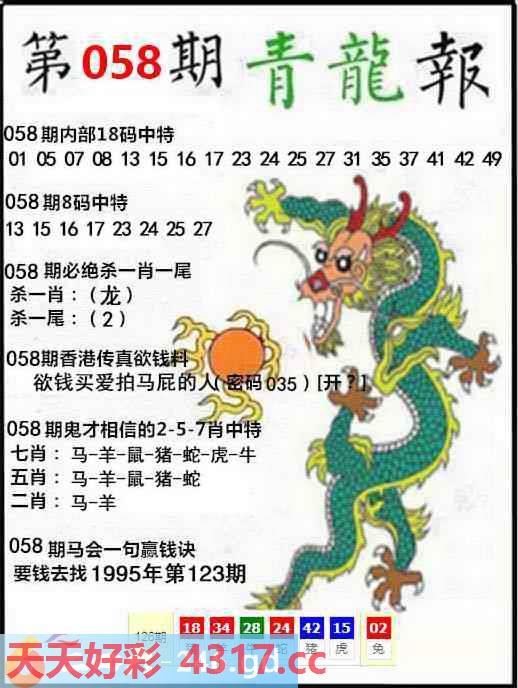 第058期 青龍報
058期内部18码中特
01 05 07 08 13 15 16 17 23 24 25 27 31 35 37 41 42 49
058期8码中特
13 15 16 17 23 24 25 27
058期必绝杀一肖一尾
杀一肖：（龙）
杀一尾：（2）
058期香港传真欲钱料
欲钱买爱拍马屁的人（密码035）[开？]
058期鬼才相信的2-5-7肖中特
七肖：马-羊-鼠-猪-蛇-虎-牛
五肖：马-羊-鼠-猪-蛇
二肖：马-羊
058期马会一句赢钱诀
要钱去找1995年第123期
18 34 28 24 42 15 02
蛇 猪 虎 兔
天天好彩 4317.cc